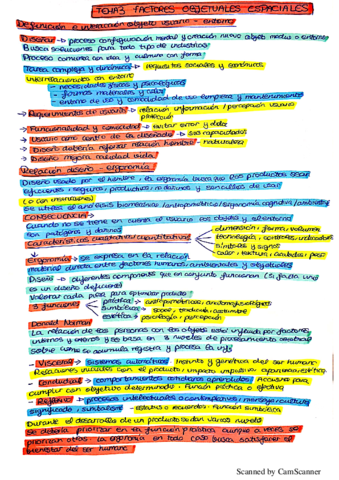 TEMA3 FACTORES OBJETUALES ESPACIALES
Definición e interacción objeto usuario - entorno
Diseñar → proceso configuración mental y creación nuevo objeto medio o entorno
Busca soluciones para todo tipo de industrias
Proceso comienza con idea y culmina con forma
Tarea compleja y dinámica → requisitos sociales y económicos
Interrelacionados con entorno
- necesidades físicas y psicológicas
- formas materiales y color
- entorno de uso y comodidad de uso limpieza y mantenimiento
→ Requerimientos de usuario → relación información / percepción usuario
→ Funcionalidad y comodidad → evitar error y daño
→ Usuario como centro de lo diseñado → sus capacidades
→ Diseño debería reforzar relación hombre - naturaleza
→ Diseño mejora calidad vida
Relación diseño - ergonomía
Diseño usado por el hombre, la ergonomía busca que los productos sean
eficientes, seguros, productivos, modernos y sencillos de usar
(o con instrucciones)
Se utiliza el análisis biomecánico / antropométrico / ergonomía cognitiva / ambiental
CONSECUENCIA →
Cuando no se tiene en cuenta el usuario los objetos y el entorno
son peligros y daños
Características cualitativas / cuantitativas
dimensión, forma, volumen
tecnología, controles, indicadores
símbolos y signos
color, textura, acabados y peso
Ergonomía → se expresa en la relación
material directa entre factores humanos, ambientales y objetuales
Diseño → diferentes componentes que en conjunto funcionan (si falla uno
es un diseño deficiente)
Valorar cada pieza para optimizar producto
3 funciones
práctica → antropométricas, anatomofisiológicas
simbólica → social, tradición, costumbre
estética → psicología, percepción
Donald Norman
La relación de las personas con los objetos está influida por factores
internos y externos y se basa en 3 niveles de procesamiento cerebral
sobre como se acumula registra y procesa la info
- Visceral → sistemas automáticos. Instinto y genética del ser humano
Relaciones iniciales con el producto, impacto impulsivo apariencia estética
- Conductual → comportamientos cotidianos aprendidos. Acciones para
cumplir con objetivo determinado. Función práctica o efectiva
- Reflexivo → procesos intelectuales o contemplativos, mensaje cultural
significado, simbolismo - estatus o recuerdos. Función simbólica
Durante el desarrollo de un producto se dan varios niveles
se debería priorizar en la función práctica aunque a veces se
priorizan otras. La ergonomía en todo caso busca satisfacer el
bienestar del ser humano
Scanned by CamScanner